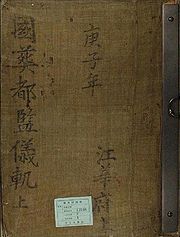 庚子年
江華府上
國葬都監儀軌 上